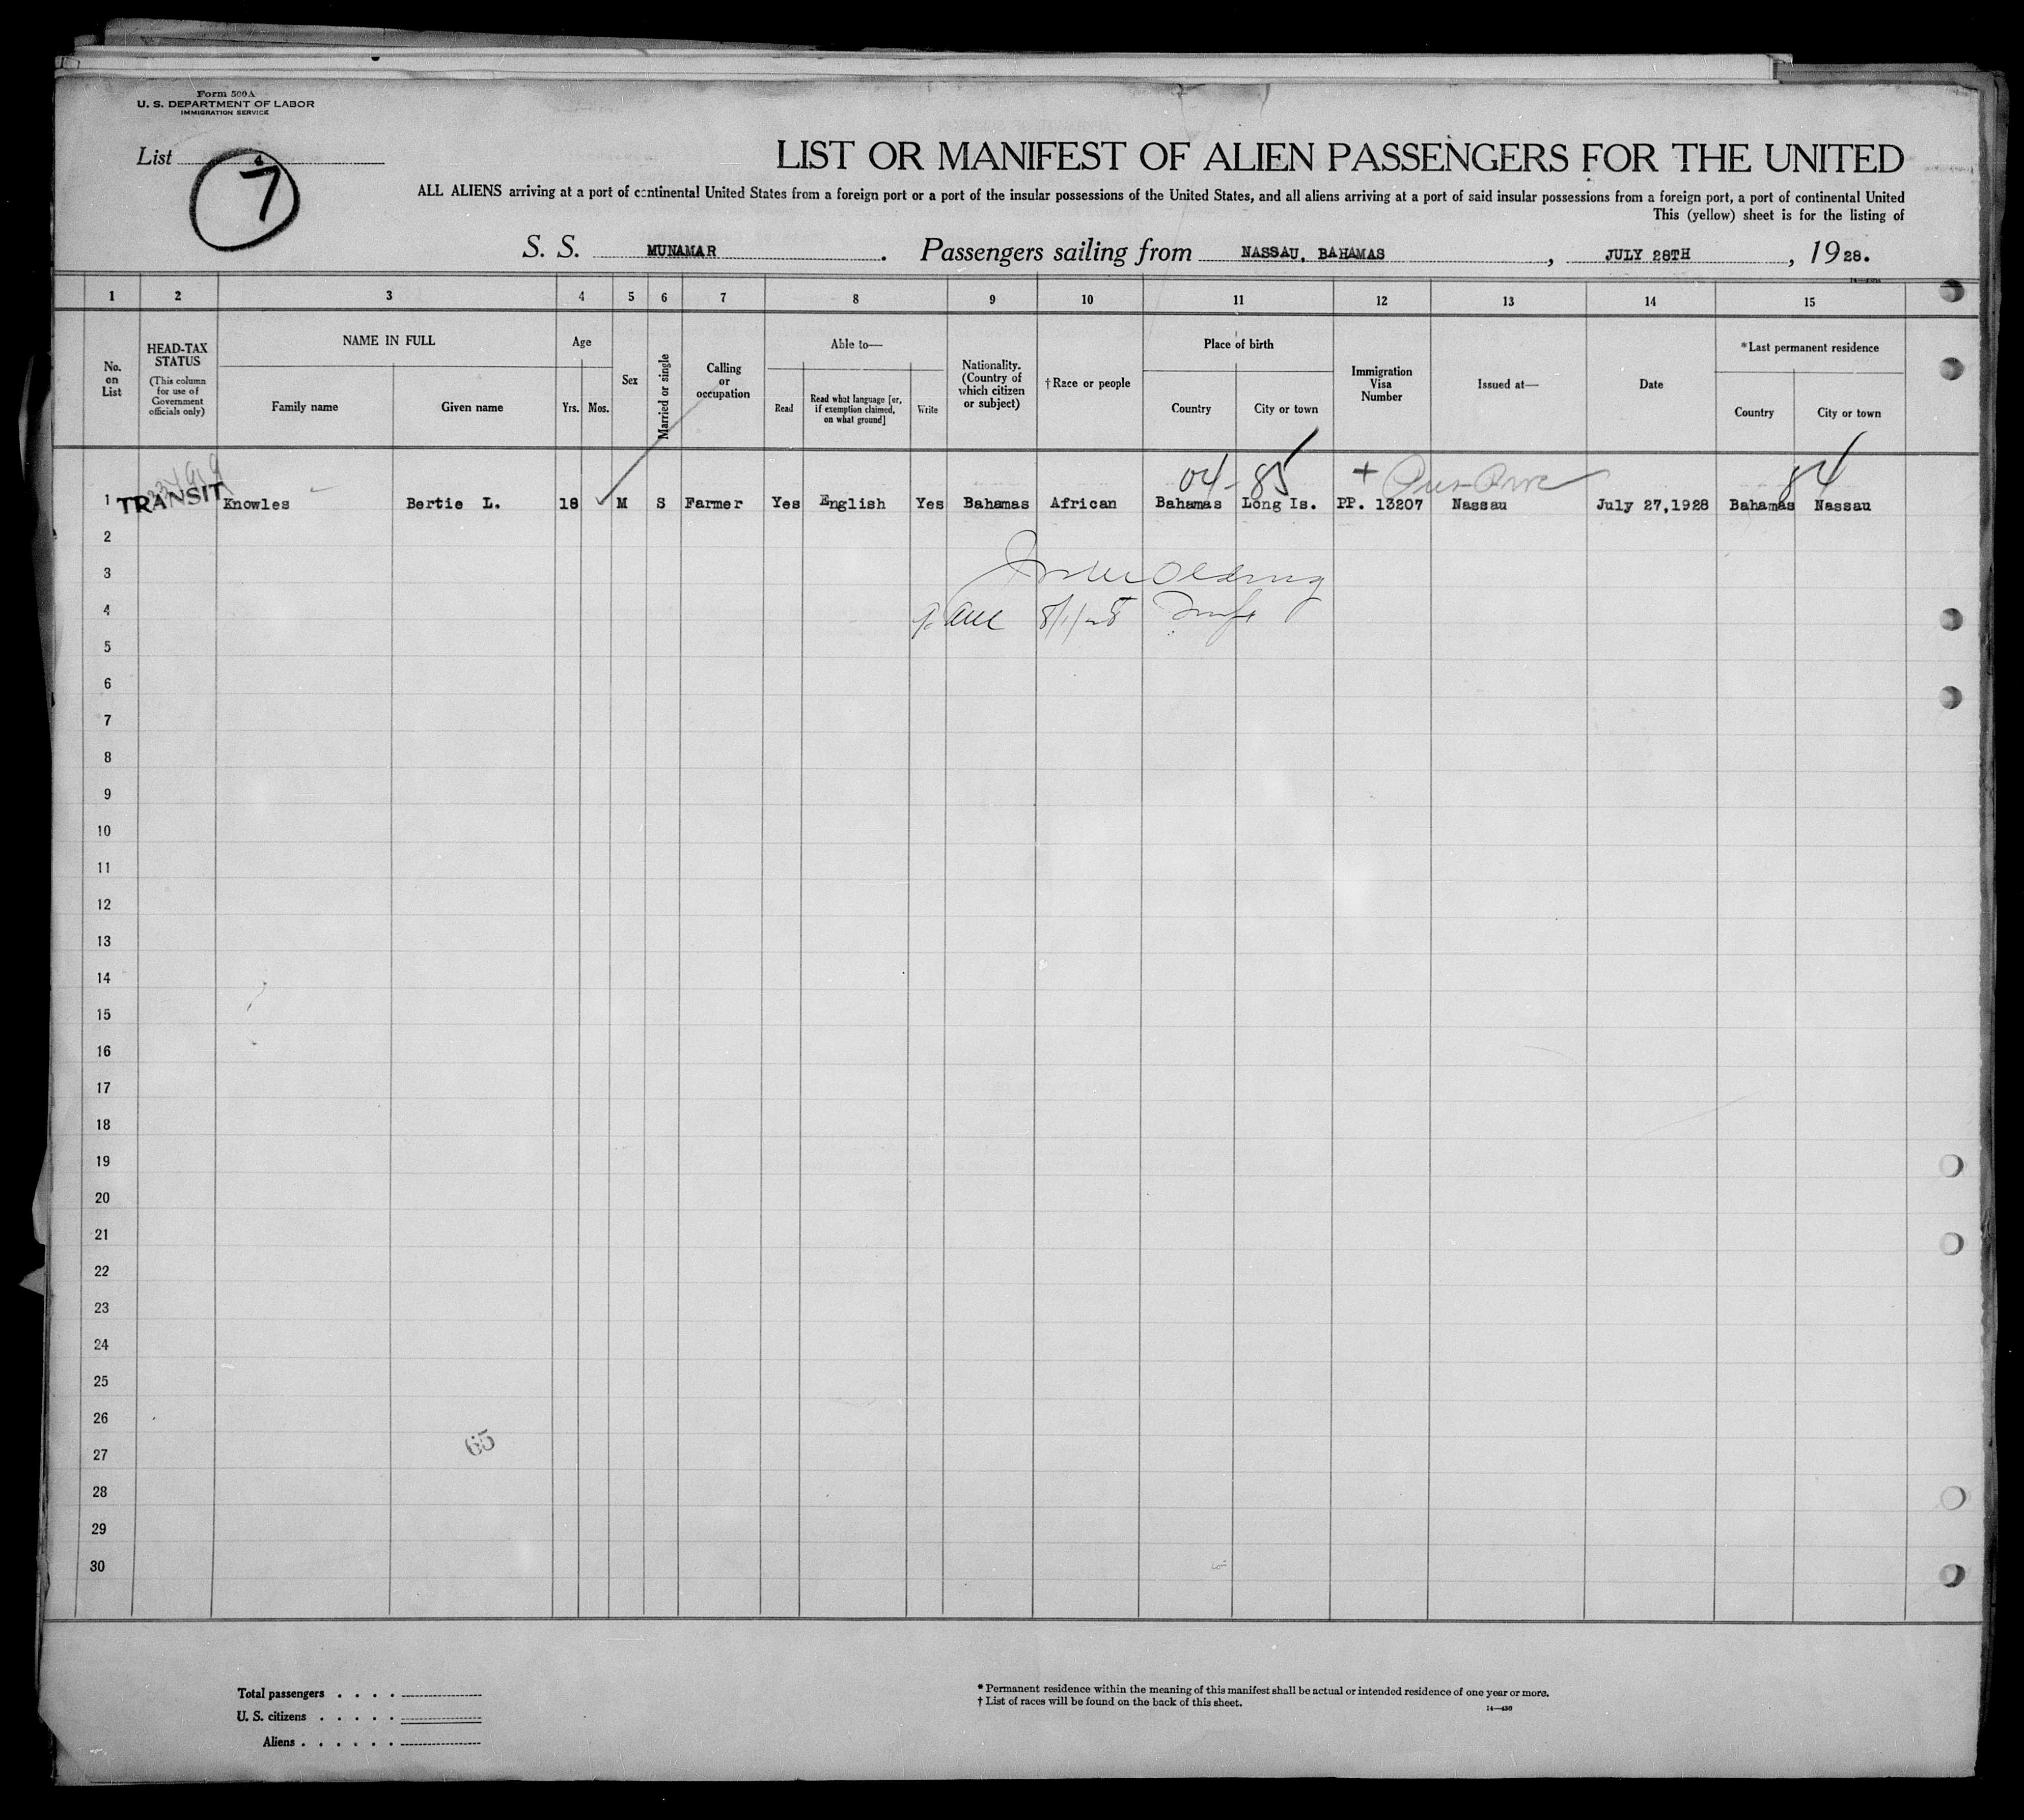 Form 500A
U. S. DEPARTMENT OF LABOR
IMMIGRATION SERVICE
List 4
7
LIST OR MANIFEST OF ALIEN PASSENGERS FOR THE UNITED
ALL ALIENS arriving at a port of continental United States from a foreign port or a port of the insular possessions of the United States, and all aliens arriving at a port of said insular possessions from a foreign port, a port of continental United
This (yellow) sheet is for the listing of
S. S. MUNAMAR. Passengers sailing from NASSAU, BAHAMAS, JULY 28TH, 1928.
1 2 3 4 5 6 7 8 9 10 11 12 13 14 15
No. on List
HEAD-TAX STATUS (This column for use of Government officials only)
NAME IN FULL
Family name Given name
Age
Yrs. Mos.
Sex
Married or single
Calling or occupation
Able to—
Read Read what language [or, if exemption claimed, on what ground] Write
Nationality. (Country of which citizen or subject)
†Race or people
Place of birth
Country City or town
Immigration Visa Number
Issued at—
Date
*Last permanent residence
Country City or town
04-85 84
1 TRANSIT Knowles Bertie L. 18 M S Farmer Yes English Yes Bahamas African Bahamas Long Is. PP. 13207 Nassau July 27,1928 Bahamas Nassau
2
3
4 8/1/28
5
6
7
8
9
10
11
12
13
14
15
16
17
18
19
20
21
22
23
24
25
26
65
27
28
29
30
Total passengers . . . .
U. S. citizens . . . . .
Aliens . . . . . .
* Permanent residence within the meaning of this manifest shall be actual or intended residence of one year or more.
† List of races will be found on the back of this sheet.
14—430